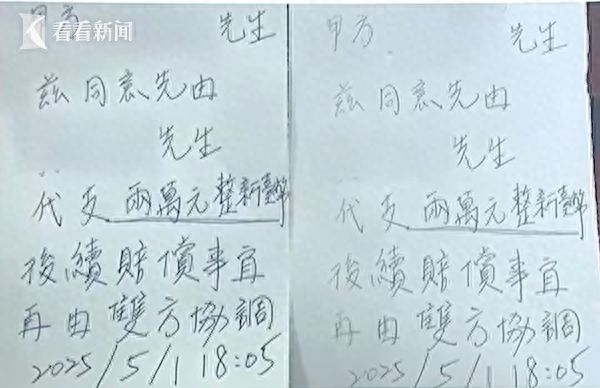 看看新闻
甲方 先生
茲同意先由
先生
代支 兩萬元整新臺幣
後續賠償事宜
再由雙方協調
2025/5/1 18:05
甲方 先生
茲同意先由
先生
代支 兩萬元整新臺幣
後續賠償事宜
再由雙方協調
2025/5/1 18:05